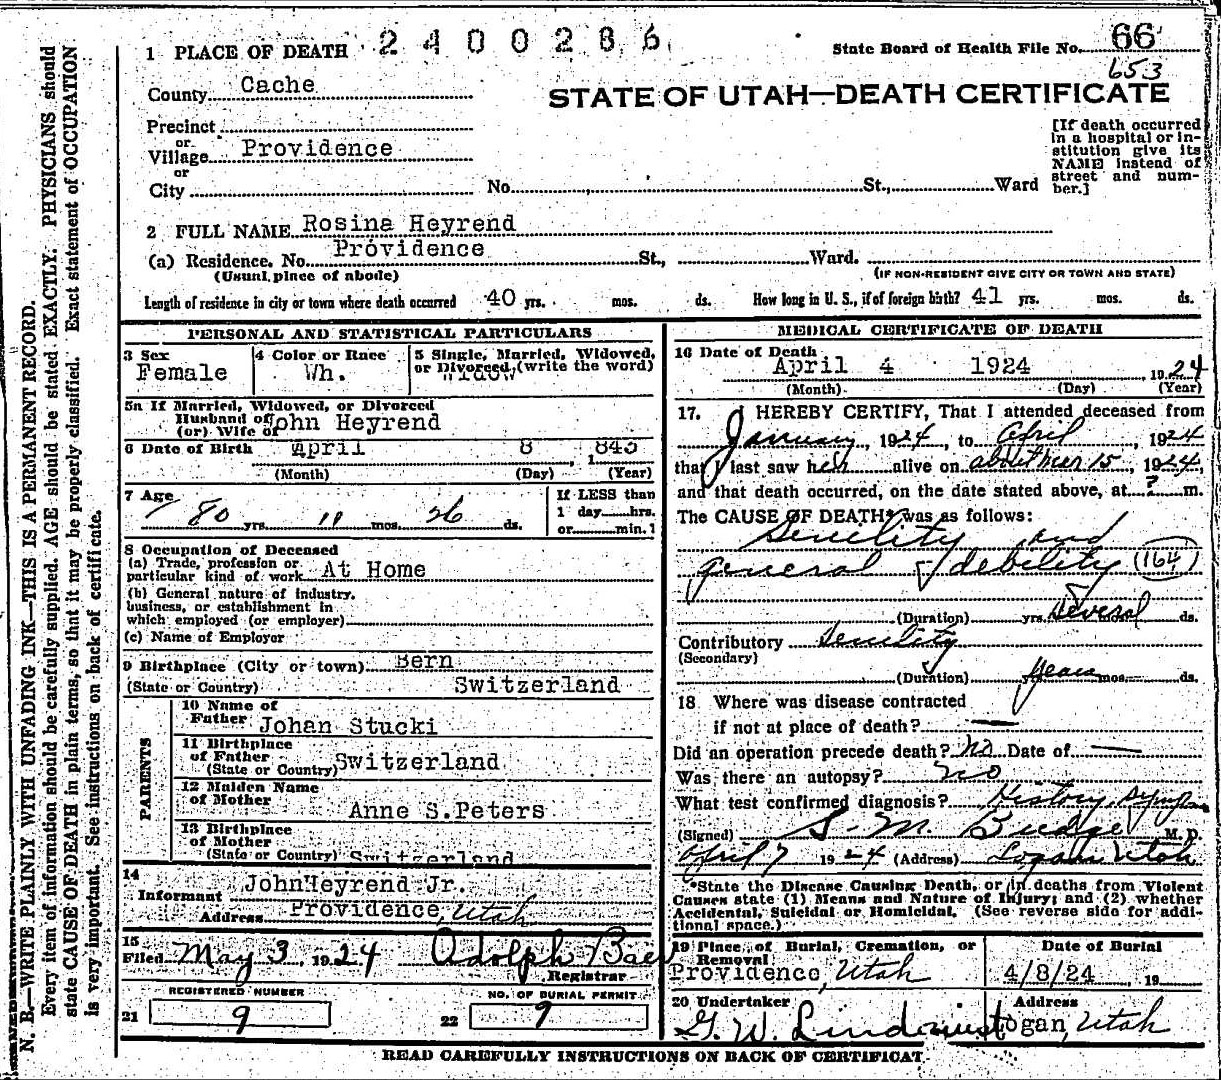 2400286
State Board of Health File No. 66
653
1 PLACE OF DEATH
County Cache
STATE OF UTAH—DEATH CERTIFICATE
Precinct
or
Village Providence
or
City No. St., Ward
[If death occurred in a hospital or institution give its NAME instead of street and number.]
2 FULL NAME Rosina Heyrend
(a) Residence. No. Providence St., Ward.
(Usual place of abode) (IF NON-RESIDENT GIVE CITY OR TOWN AND STATE)
Length of residence in city or town where death occurred 40 yrs. mos. ds. How long in U. S., if of foreign birth? 41 yrs. mos. ds.
PERSONAL AND STATISTICAL PARTICULARS
3 Sex Female
4 Color or Race Wh.
5 Single, Married, Widowed, or Divorced (write the word) Widow
5a If Married, Widowed, or Divorced
Husband of
(or) Wife of John Heyrend
6 Date of Birth April 8, 1843
(Month) (Day) (Year)
7 Age 80 yrs. 11 mos. 26 ds.
If LESS than
1 day hrs.
or min.
8 Occupation of Deceased
(a) Trade, profession or
particular kind of work At Home
(b) General nature of industry,
business, or establishment in
which employed (or employer)
(c) Name of Employer
9 Birthplace (City or town) Bern
(State or Country) Switzerland
PARENTS
10 Name of
Father Johan Stucki
11 Birthplace
of Father
(State or Country) Switzerland
12 Maiden Name
of Mother Anne S.Peters
13 Birthplace
of Mother
(State or Country) Switzerland
14
Informant John Heyrend Jr.
Address Providence, Utah
15
Filed May 3 1924 Adolph Baer
Registrar
REGISTERED NUMBER
21 9
NO. OF BURIAL PERMIT
22 9
MEDICAL CERTIFICATE OF DEATH
16 Date of Death
April 4 1924 1924
(Month) (Day) (Year)
17. I HEREBY CERTIFY, That I attended deceased from
January, 1924, to April, 1924
that I last saw her alive on about Mar 15, 1924,
and that death occurred, on the date stated above, at ? m.
The CAUSE OF DEATH* was as follows:
Senility and
general debility (164)
(Duration) yrs. Several ds.
Contributory Senility
(Secondary)
(Duration) years mos. ds.
18 Where was disease contracted
if not at place of death? —
Did an operation precede death? No Date of —
Was there an autopsy? no
What test confirmed diagnosis? History, Symptms
(Signed) S. M. Budge M. D.
April 7 1924 (Address) Logan Utah
*State the Disease Causing Death, or in deaths from Violent
Causes state (1) Means and Nature of Injury; and (2) whether
Accidental, Suicidal or Homicidal. (See reverse side for additional space.)
19 Place of Burial, Cremation, or
Removal
Providence, Utah
Date of Burial
4/8/24 19
20 Undertaker
G. W. Lindquist
Address
Logan, Utah
READ CAREFULLY INSTRUCTIONS ON BACK OF CERTIFICAT
N. B.—WRITE PLAINLY WITH UNFADING INK—THIS IS A PERMANENT RECORD.
Every item of information should be carefully supplied. AGE should be stated EXACTLY. PHYSICIANS should
state CAUSE OF DEATH in plain terms, so that it may be properly classified. Exact statement of OCCUPATION
is very important. See instructions on back of certificate.